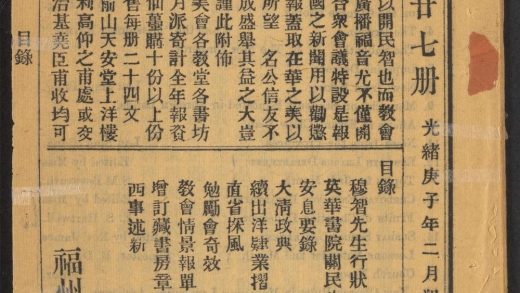 廿七册 光緒庚子年二月
以開民智也而教會
廣播福音尤不僅
合眾會議特設是報
國之新聞用以勸懲
報蓋取在華之美以
成盛舉其益之大豈
所望 名公信友不
謹此附佈
美會各教堂各書坊
月派寄計全年報資
仙 購十份以上份
售每册二十四文
前山天安堂上洋樓
利高仰之甫處或交
治基堯臣甫收均可
目錄
目錄
穆智先生行狀
英華書院關民
安息要錄
大清政典
續出洋肄業摺
直省採風
勉勵會奇效
教會情景報單
增訂藏書房章
西事述新
福州